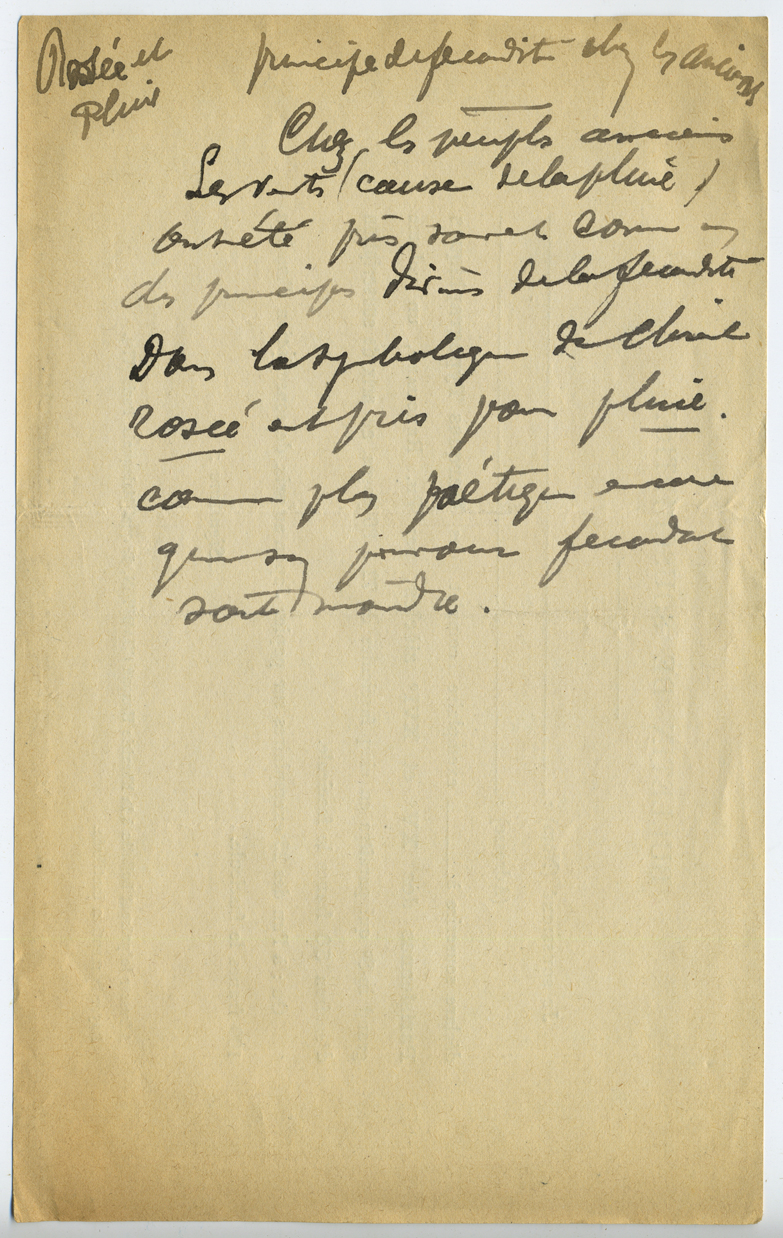 Rosée et
pluie
principe de fecondité chez les anciens
Chez les peuples anciens
Les vents (cause de la pluie)
ont été pris souvent comme
des principes divins de la fecondité
Dans la symbolique de
rosée est pris pour pluie.
comme plus poétique encore
que son pouvoir fecondant
soit moindre.